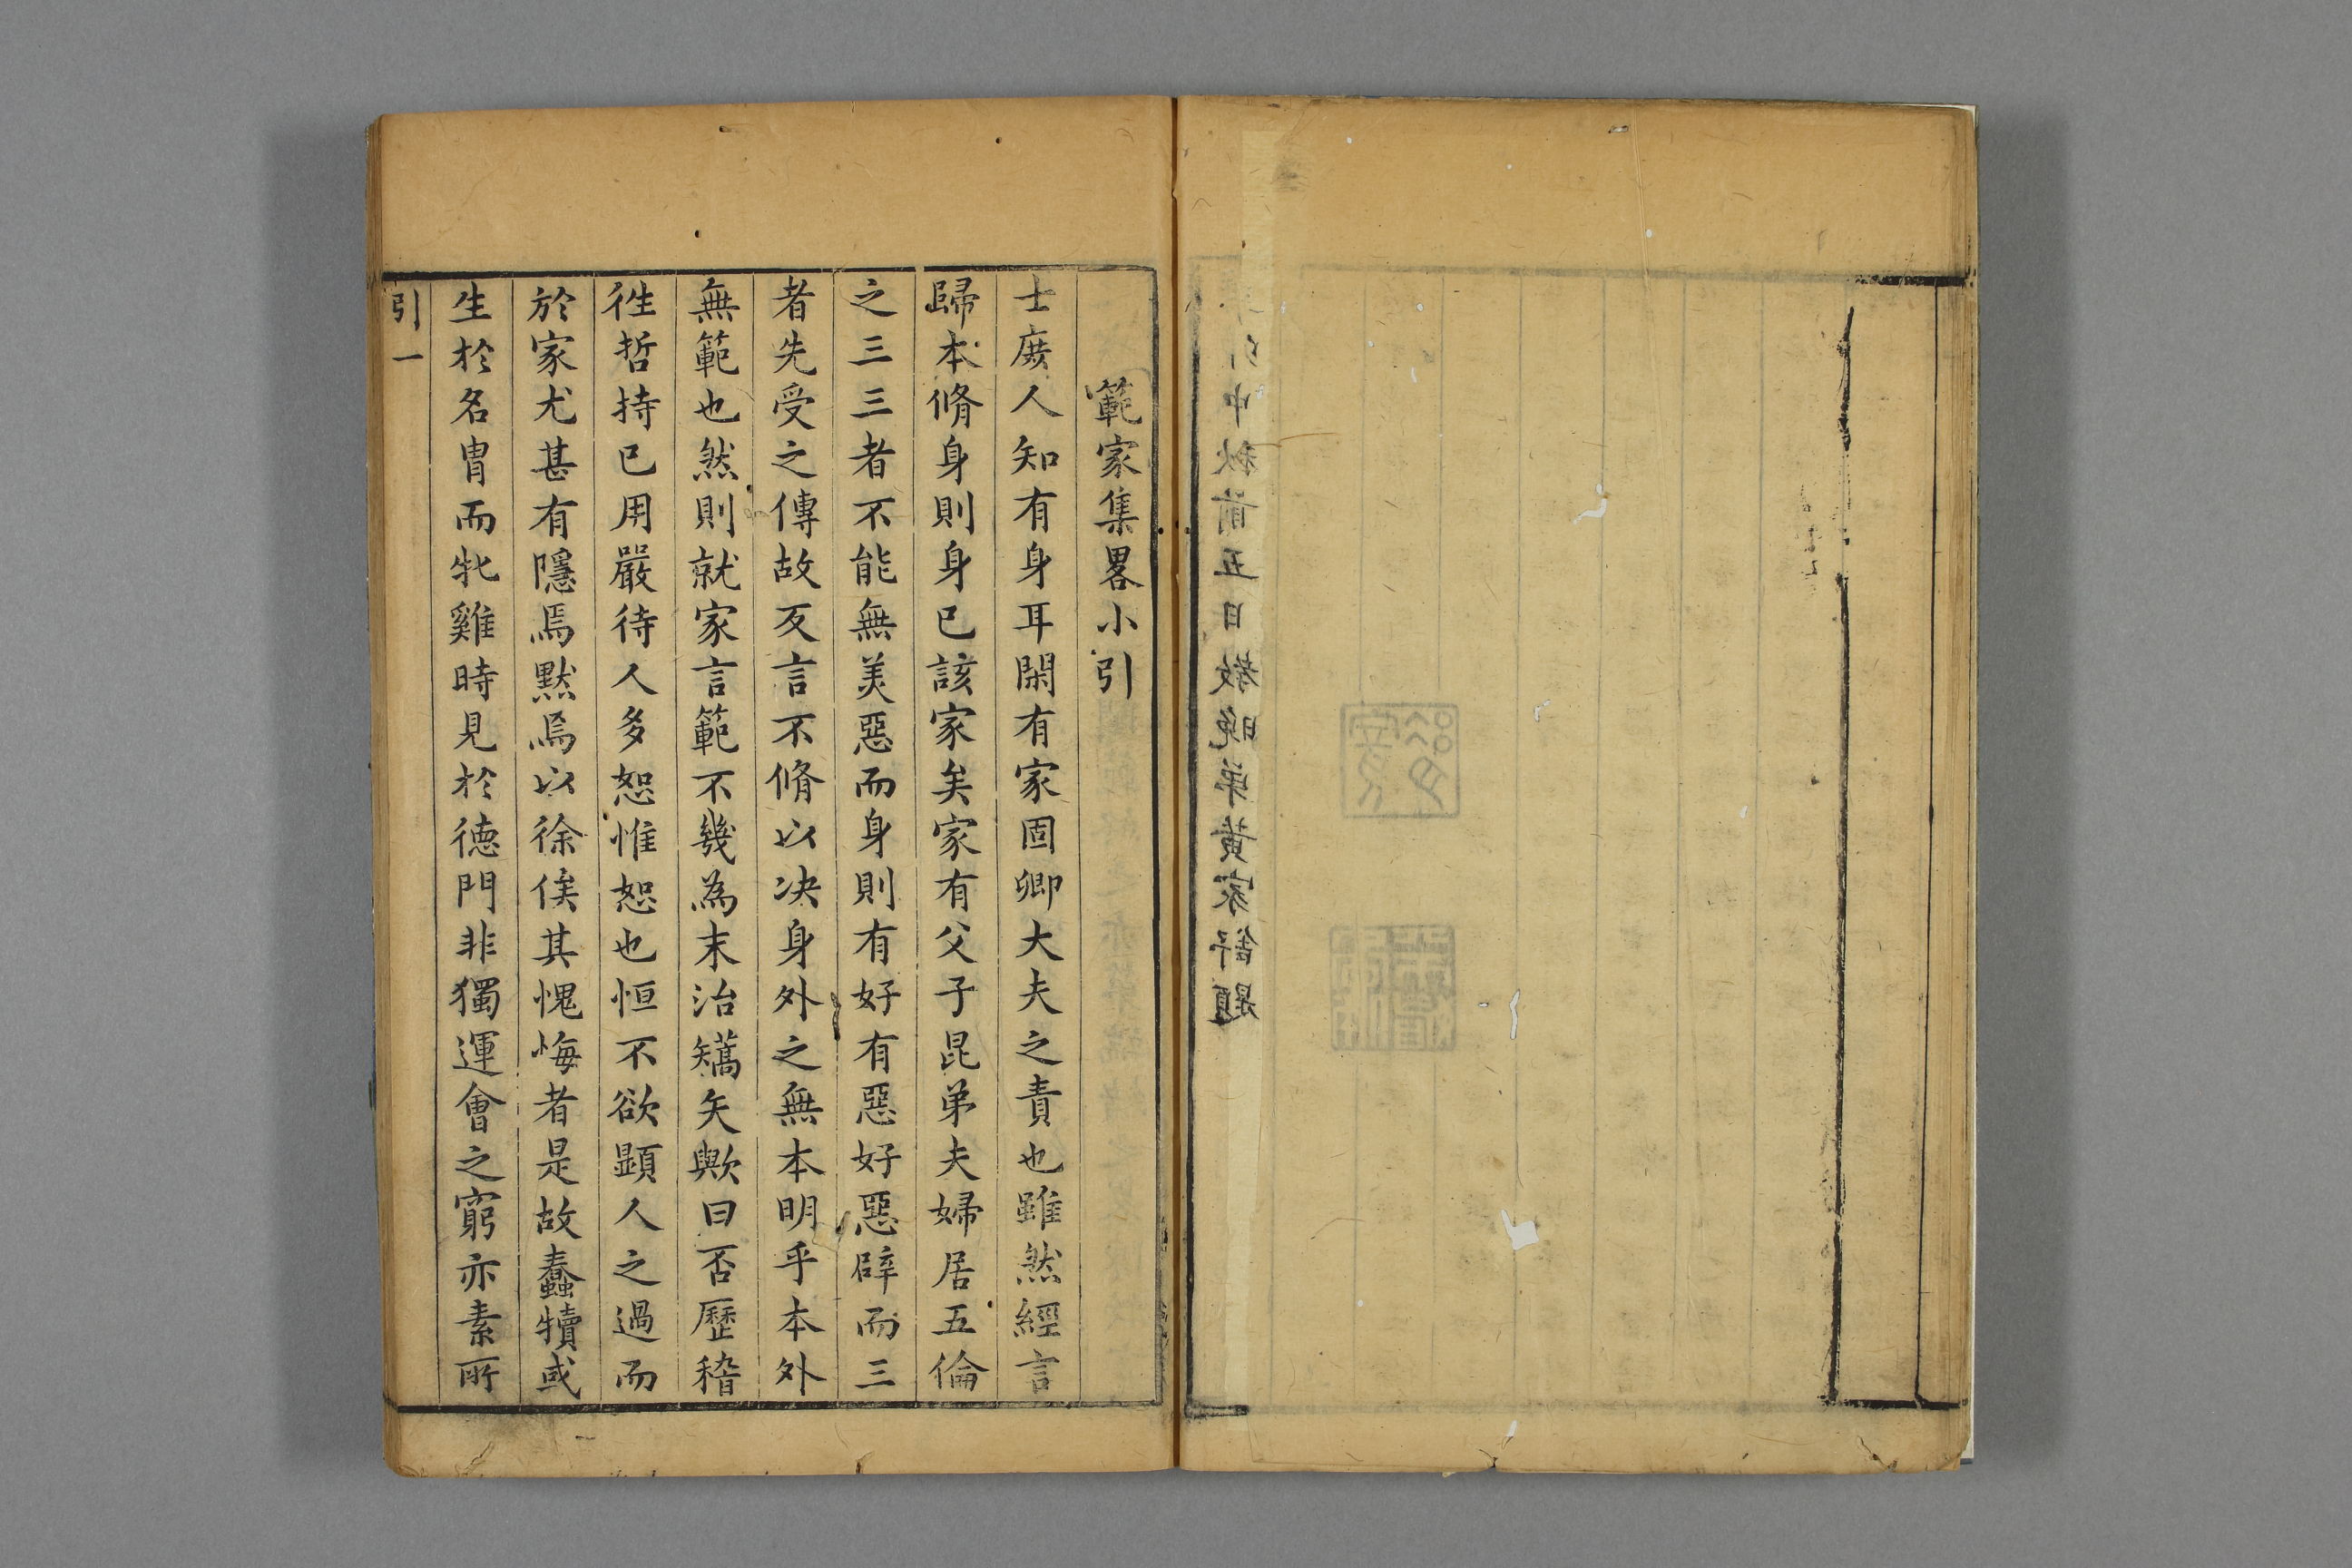 中秋前五日教晚弟黃家舒題
範家集畧小引
士庻人知有身耳閑有家固卿大夫之責也雖然經言
歸本脩身則身已該家矣家有父子昆弟夫婦居五倫
之三三者不能無美惡而身則有好有惡好惡辟而三
者先受之傳故反言不脩以决身外之無本明乎本外
無範也然則就家言範不幾為末治矯矢歟曰否歷稽
徃哲持已用嚴待人多恕惟恕也恒不欲顕人之過而
於家尤甚有隱焉黙焉以徐俟其愧悔者是故蠢犢或
生於名胄而牝雞時見於德門非獨運會之窮亦素所
引一